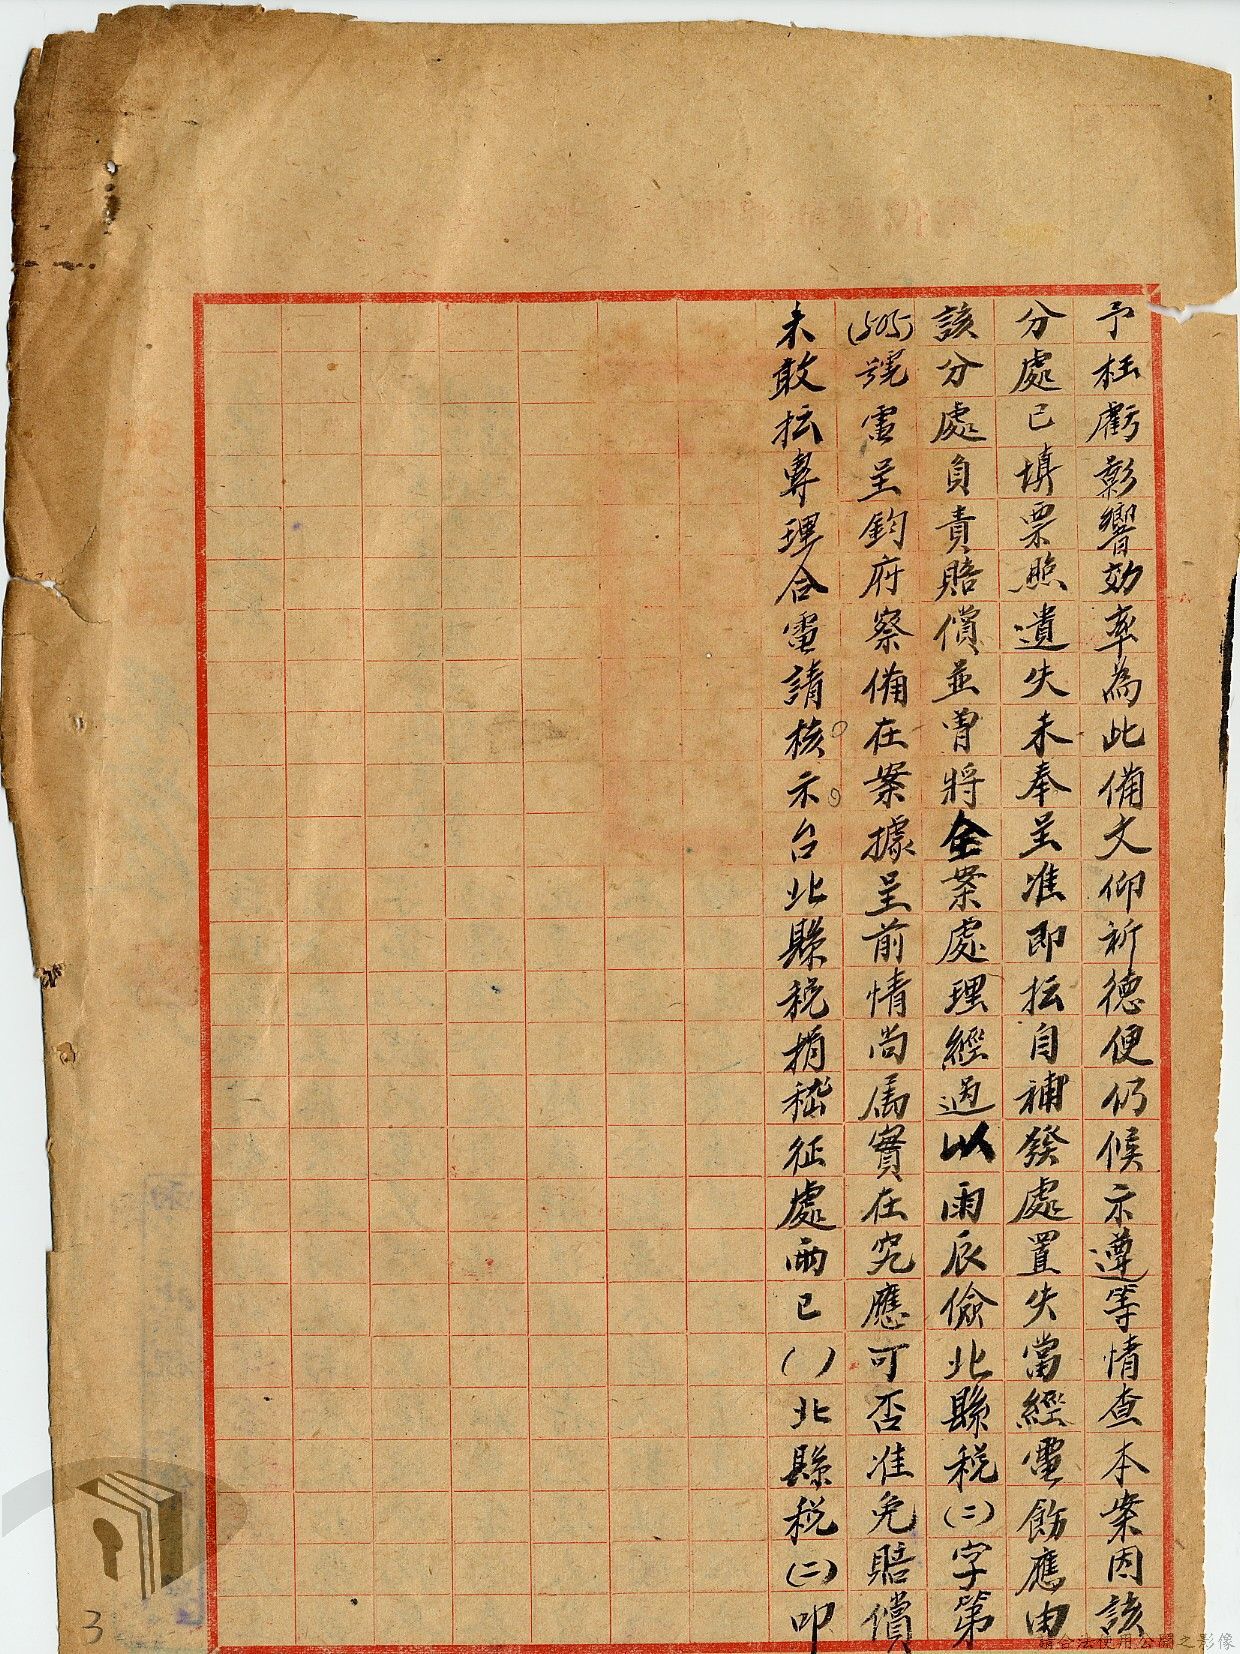 予枉虧影響効率為此備文仰祈德便仍候示遵等情查本案因該
分處已填票照遺失未奉呈准即擅自補發處置失當經電飭應由
該分處負責賠償並曾將全案處理經過以雨辰儉北縣稅(二)字第
(505)號電呈鈞府察備在案據呈前情尚属實在究應可否准免賠償
未敢擅專理合電請核示台北縣稅捐稽征處雨已( )北縣稅(二)叩
3
請合法使用公開之影像